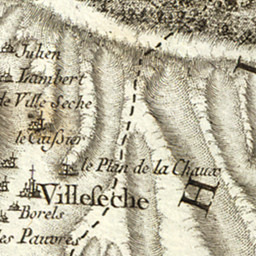 Julien
Lambert
de Ville Seche
le Caissier
le Plan de la Chaux
Villeseche
H
Borels
les Pauvres